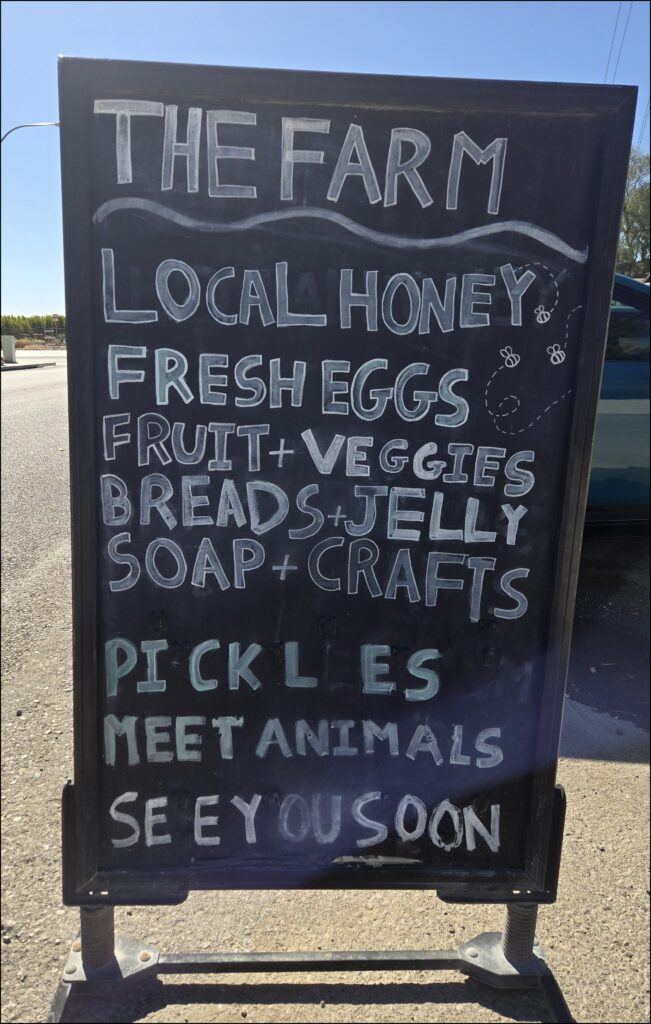 THE FARM
LOCAL HONEY
FRESH EGGS
FRUIT + VEGGIES
BREADS + JELLY
SOAP + CRAFTS
PICKLES
MEET ANIMALS
SEE YOU SOON